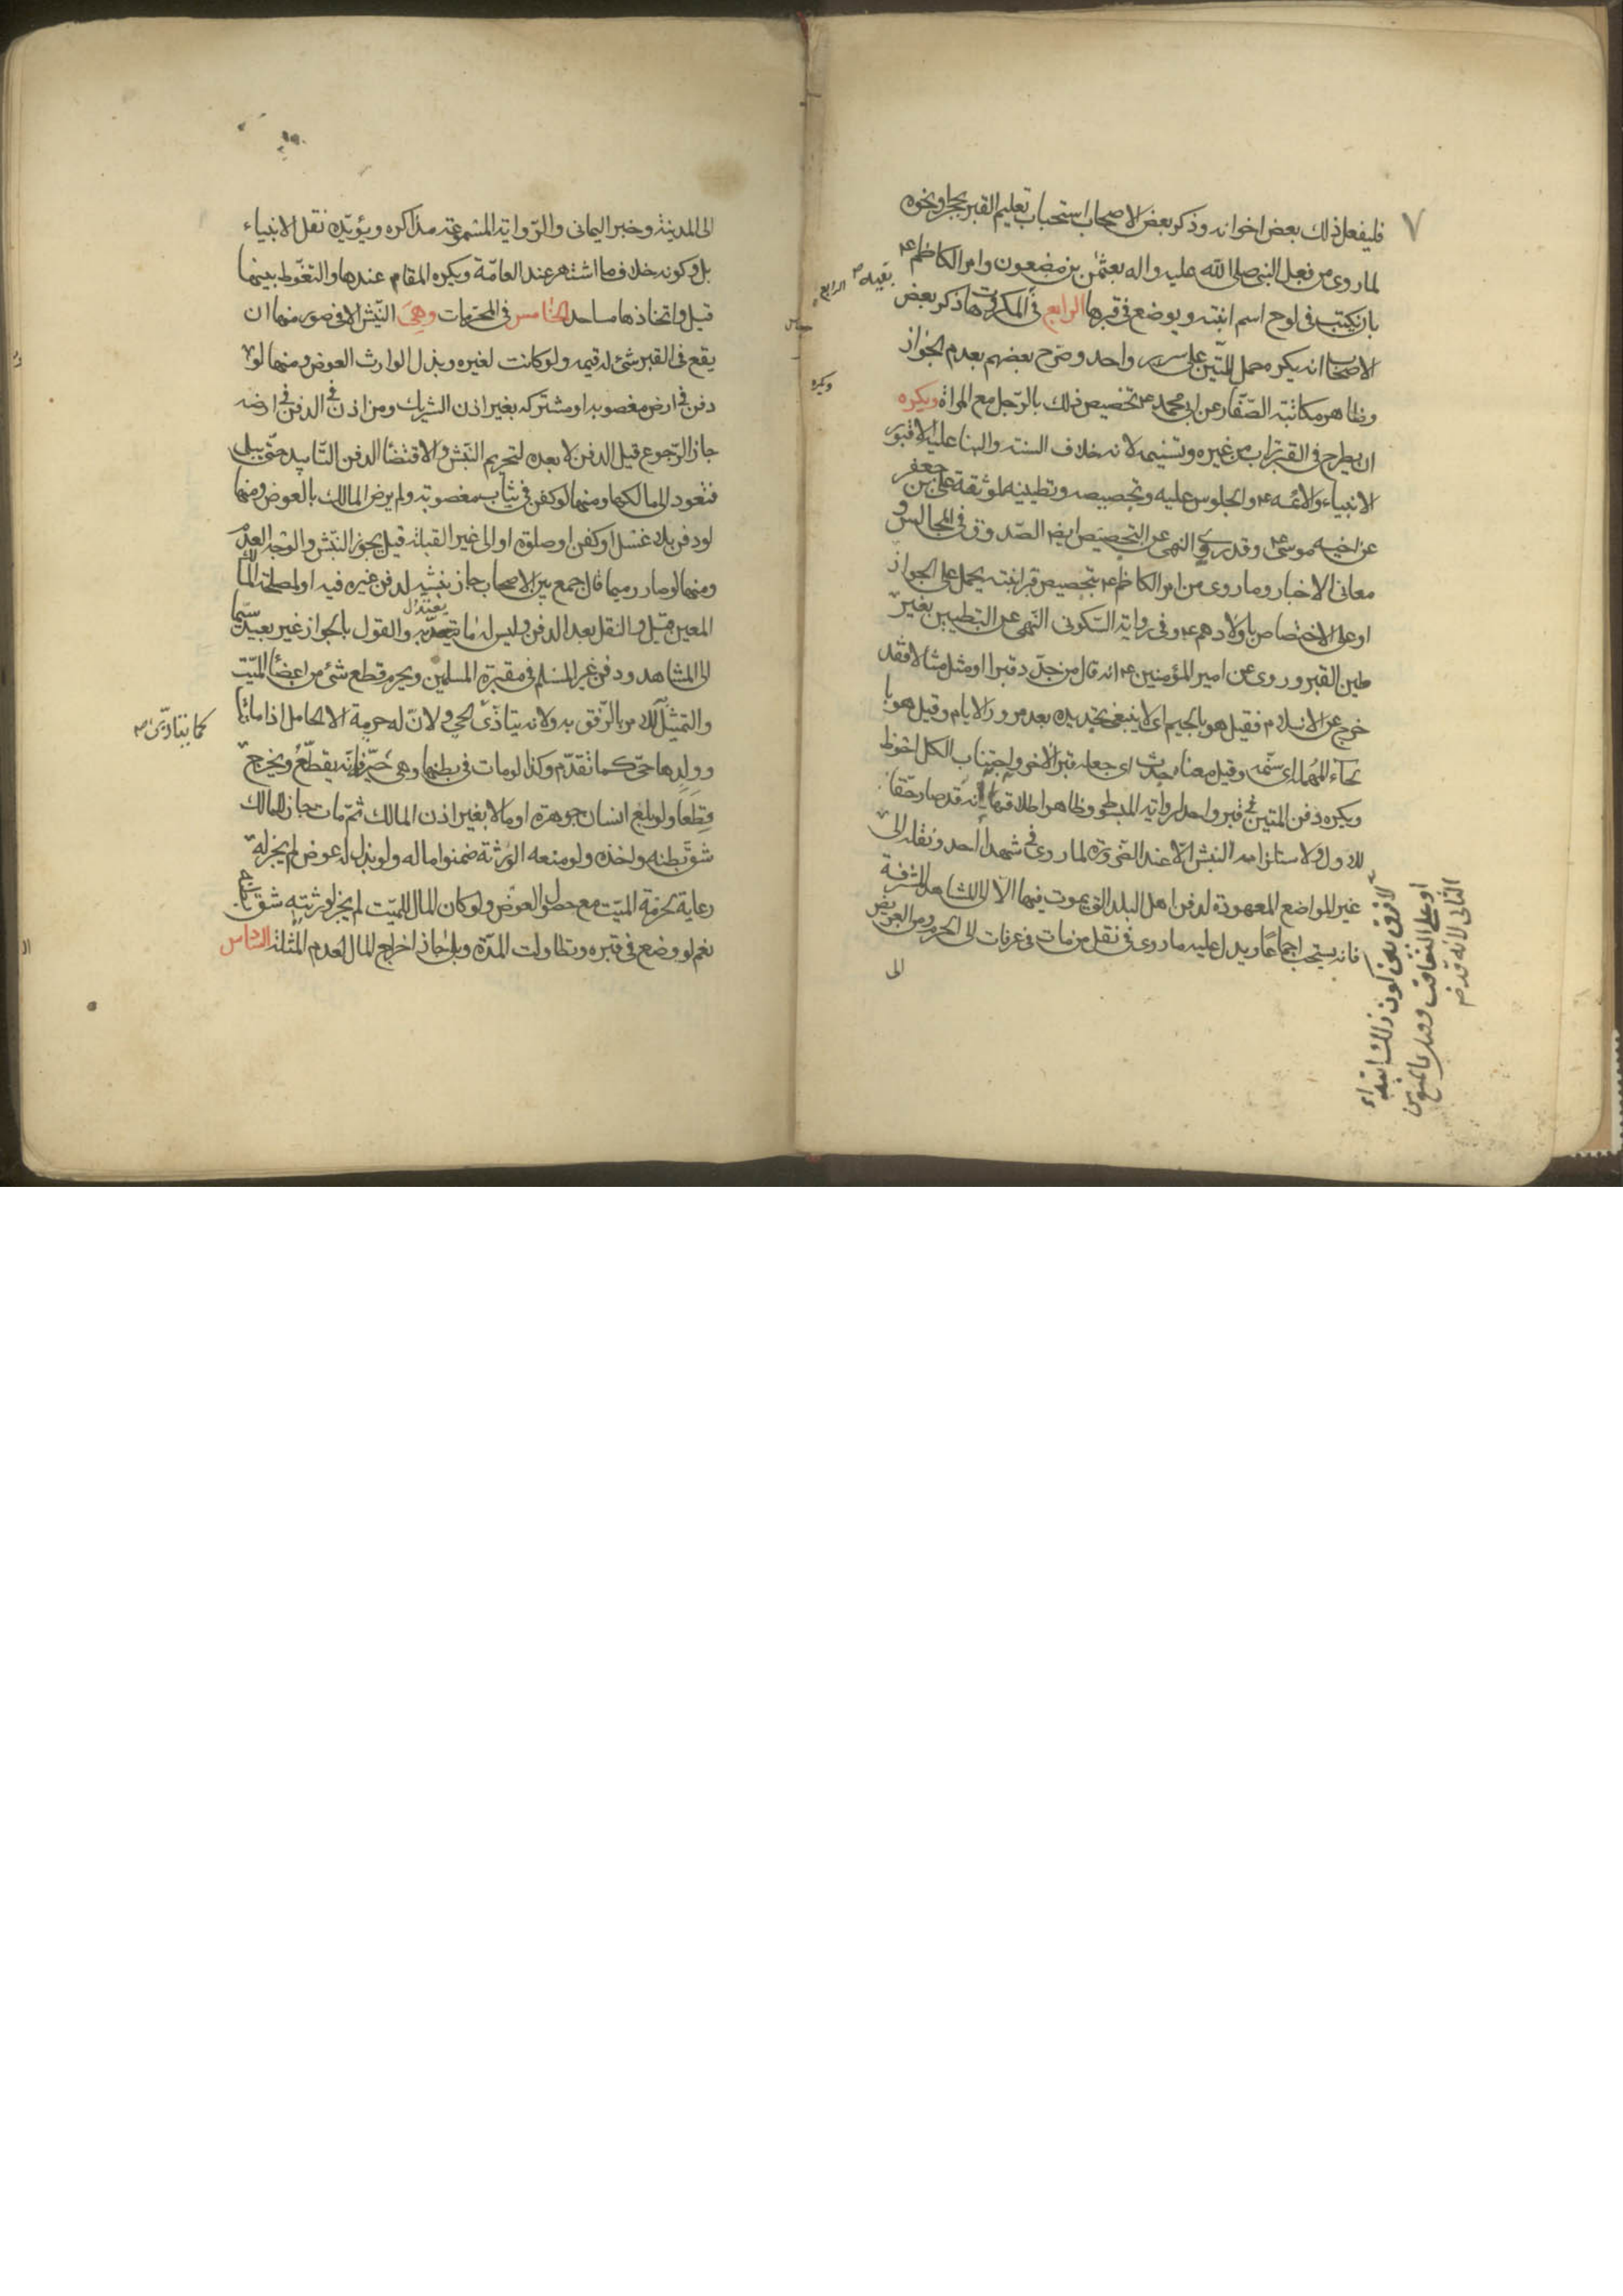 ٧
فليفعل ذلك بعض اخوانه وذكر بعض الاصحاب استحباب تعليم القبر بحجر ونحوه
لما روى من فعل النبي صلى الله عليه واله بعثمن بن مضعون وامر الكاظم ع
بان يكتب في لوح اسم ابنته ويوضع في قبرها الرابع في المكروهات ذكر بعض
الاصحاب انه يكره حمل الميتين على سرير واحد وصرح بعضهم بعدم الجواز
وظاهر مكاتبة الصفار عن ابي محمد ع تخصيص ذلك بالرجل مع المراة ويكره
ان يطرح في القبر تراب من غيره وتسنيمه لانه خلاف السنه والبنا عليه الا قبور
الانبياء والائمه ع والجلوس عليه وتجصيصه وتطيينه لموثقة على بن جعفر
عن اخيه موسى ع وقد روى النهى عن التجصيص ايضا الصدوق في المجالس و
معانى الاخبار وما روى من امر الكاظم ع بتجصيص قبر ابنته يحمل على الجواز
او على الاختصاص باولادهم ع وفى رواية السكونى النهى عن التطيين بغير
طين القبر وروى عن امير المؤمنين ع انه قال من جدد قبرا او مثل مثالا فقد
خرج عن الاسلام فقيل هو بالجيم اى لا ينبغى تجديده بعد مرور الايام وقيل هو با
لحاء المهملة اى سنمه وقيل معناه جدث اى جعله قبر الاخر واجتناب الكل احوط
ويكره دفن الميتين في قبر واحد لرواية المبسوط وظاهر اطلاقها انه قد صار حقا
للاول ولاستلزامه النبش الا عند الضرورة لما روى في شهداء احد ونقله الى
غير المواضع المعهودة لدفن اهل البلد التى يموت فيها الا الى المشاهد المشرفة
فانه يستحب اجماعا ويدل عليه ما روى في نقل من مات في عرفات الى الحرم ومن العريض
الى
لا فرق بين كون ذلك ابتداء
او على التعاقب
الثانى لانه قد
الى المدينة وخبر اليمانى والرواية المشموعة مذاكره ويؤيده نقل الانبياء
بل وكونه خلاف ما اشتهر عند العامة ويكره المقام عندها والتغوط بينها
قيل واتخاذها مساجد الخامس في المحرمات وهى النبش الا في صور منها ان
يقع في القبر شئ له قيمه ولو كانت لغيره وبذل الوارث العوض ومنها لو
دفن في ارض مغصوبه او مشتركه بغير اذن الشريك ومن اذن في الدفن في ارضه
جاز الرجوع قبل الدفن لا بعده لتحريم النبش ولاقتضاء الدفن التابيد حتى يبلى
فتعود الى مالكها ومنها لو كفن في ثياب مغصوبه ولم يرض المالك بالعوض ومنها
لو دفن بلا غسل او كفن او صلوة او الى غير القبلة قيل يجوز النبش والوجه العدم
ومنها لو صار رميما فان جمع بين الاصحاب جاز نبشه لدفن غيره فيه او لمصلحة المالك
المعين قبل والنقل بعد الدفن وليس له ما يعتد به والقول بالجواز غير بعيد سيما
الى المشاهد ودفن غير المسلم في مقبرة المسلمين ويحرم قطع شئ من اعضاء الميت
والتمثيل للامر بالرفق به ولانه يتاذى كما يتاذى الحى ولان له حرمة الا الحامل اذا ماتت
وولدها حى كما تقدم وكذا لو مات في بطنها وهى حية فانه يقطع ويخرج
قطعا ولو بلغ انسان جوهرة او مالا بغير اذن المالك ثم مات جاز للمالك
شق بطنه واخذه ولو منعه الورثة ضمنوا ماله ولو بذل له عوض لم يجز له
رعاية لحرمة الميت مع حصول العوض ولو كان المال للميت لم يجز لورثته شق
نعم لو وضع في قبره وتطاولت المدة وبلى جاز اخراج المال لعدم المثلة السادس